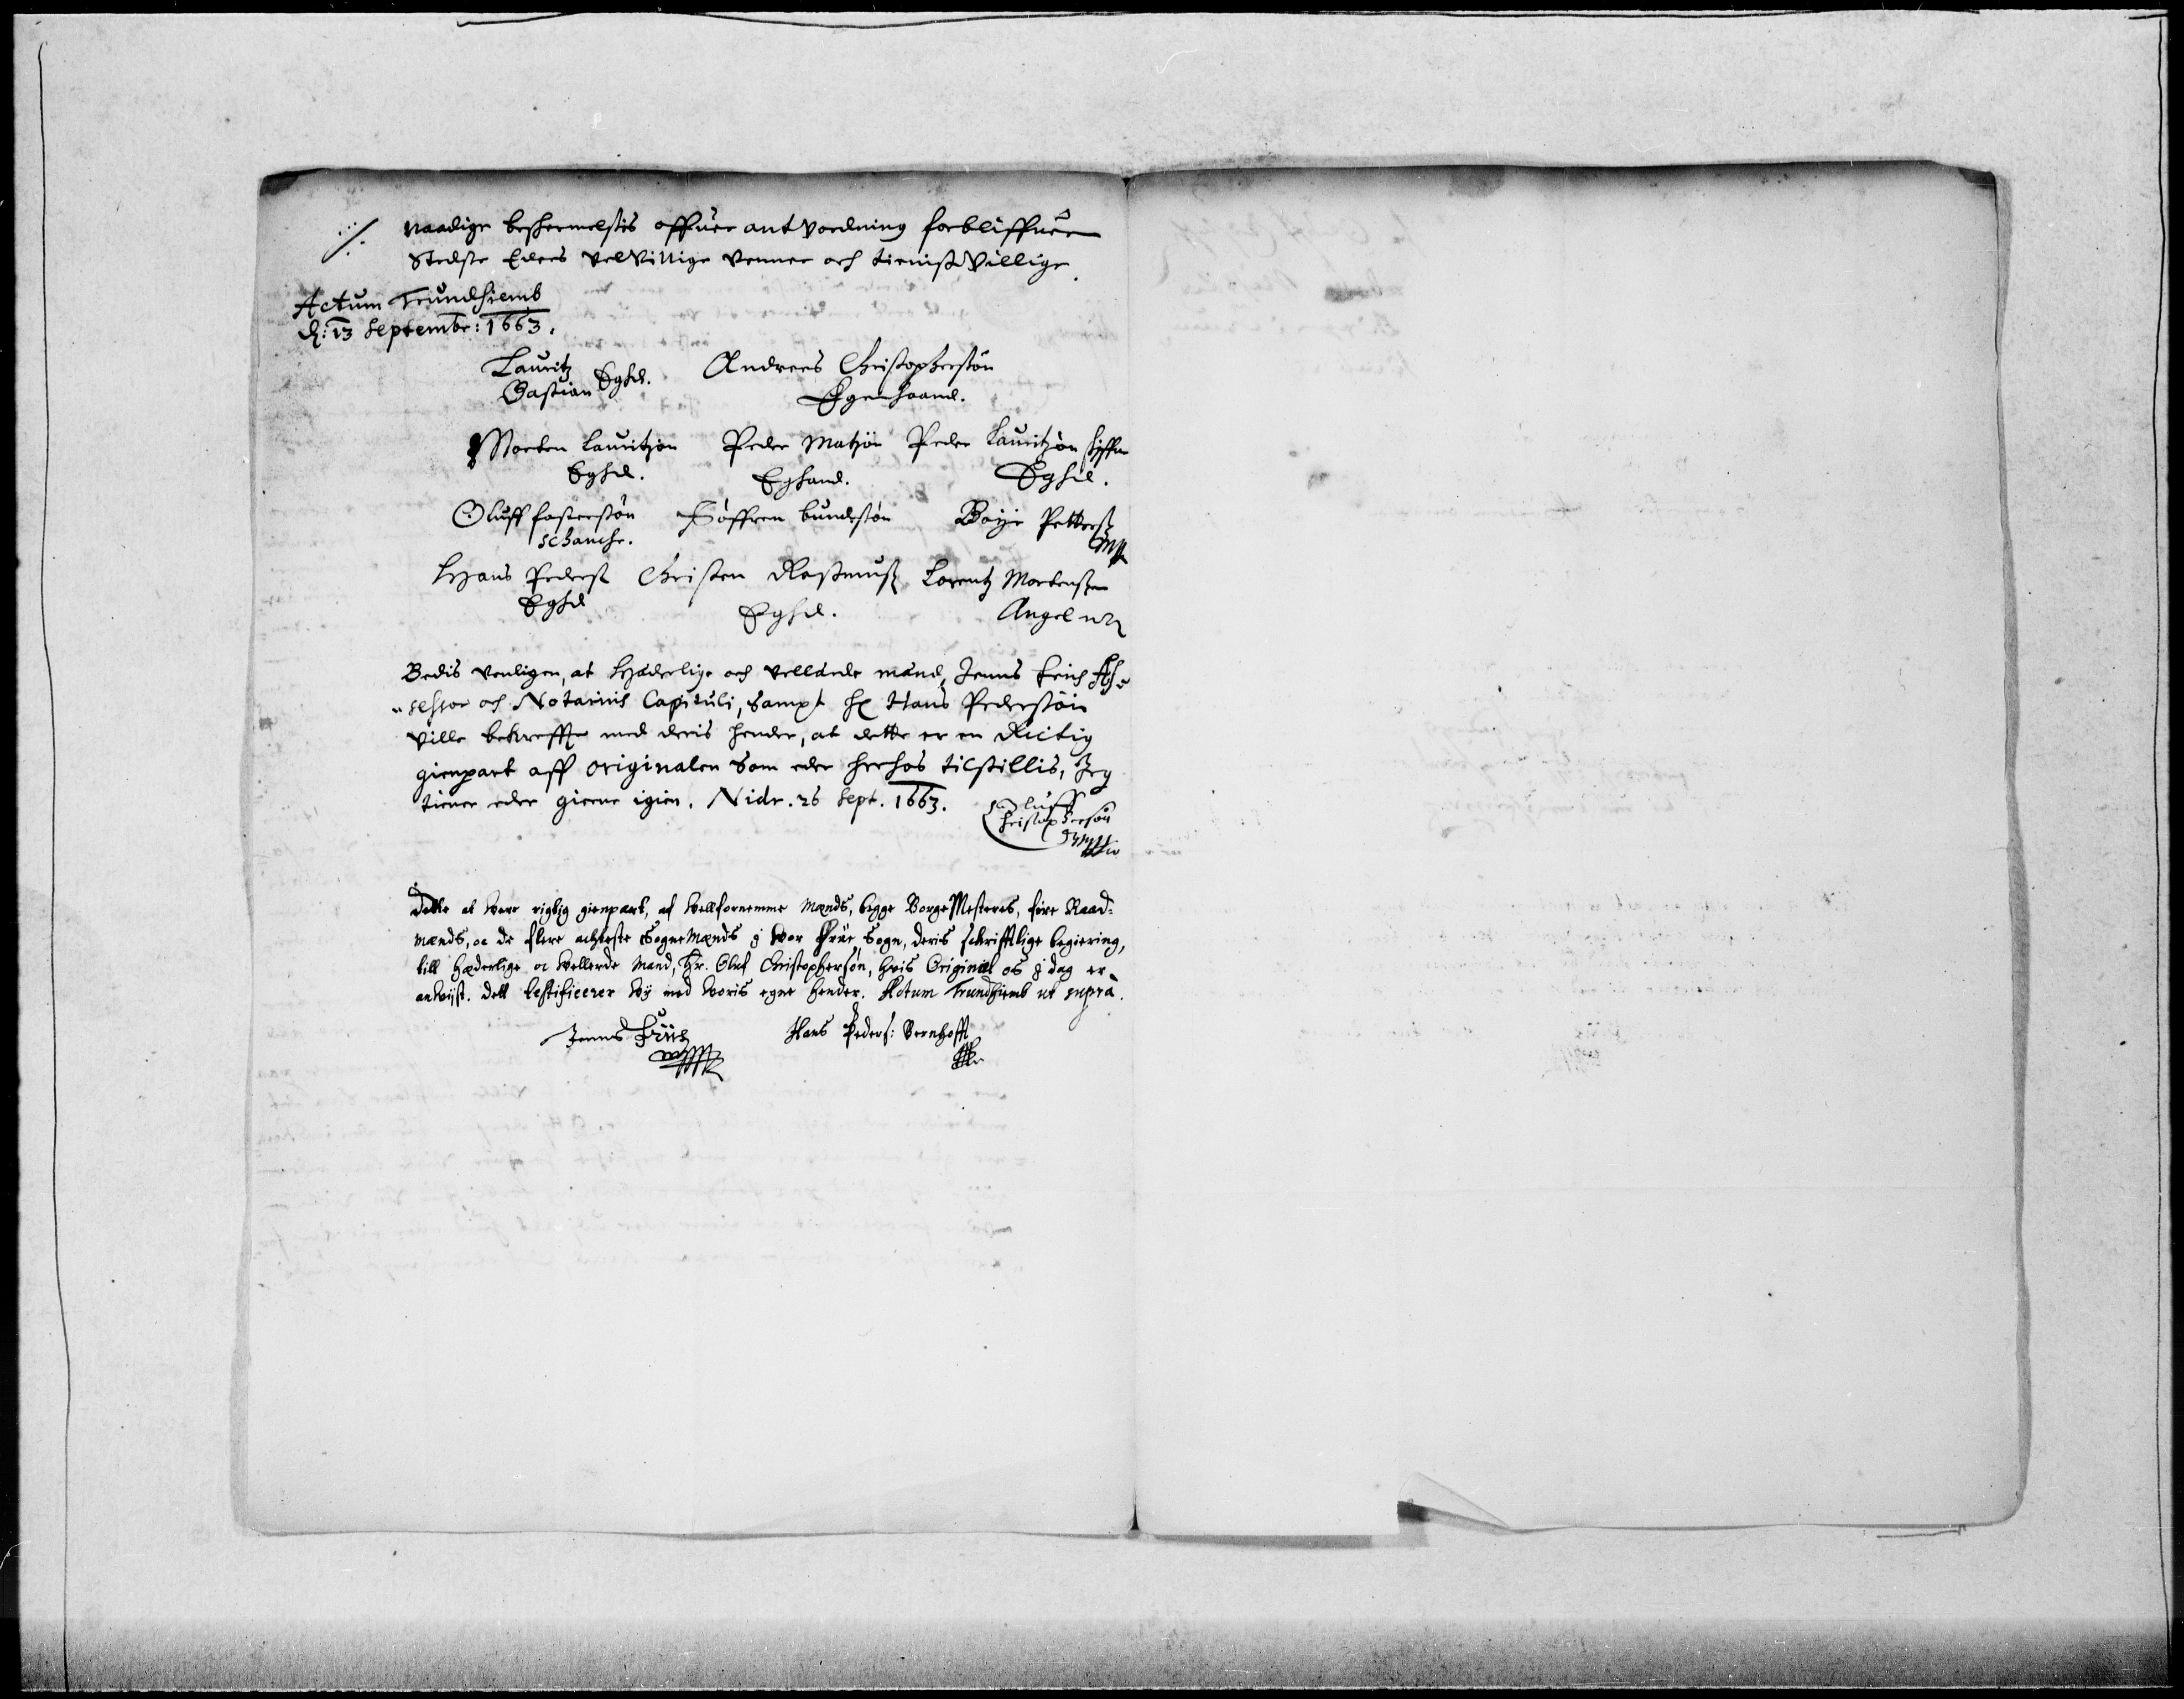 naadige beskermelßis offuer antvordning forbliffuer
Stedße Eders velvillige venner och tienist villige.
Actum Trundhiemb
d: 13 Septembr: 1663.
Lauritz Eghd. Andrees Christopherßøn
Bastian Egenhaand.
Morten Lauritzøn Peder Matzøn Peder Lauritzøn
Eghd. Eghand. Eghd.
Oluff Casperßøn Søffren bundeßøn Boÿe Petterß
schancke. Mpp
Hans Pederß Christen Raßmuß Lorentz Mortenßen
Eghd Eghd. Angel
Bedis venligen, at Hæderlige och vellærde mænd, Jenns Friis Ass
sessor och Notarius Capituli, Sampt Hr Hans Pederßøn
ville bekreffte med deris hender, at dette er en Rictig
gienpart aff originalen Som eder herhos tilstillis, Jeg
tiener eder gierne igien. Nidr. 26 Sept. 1663. Oluff
Christopherßøn
Mppio
Dette at were rigtig gienpart, af Wellfornemme Mænds, begge BorgeMesteres, fire Raad-
mænds, oc de flere achteste SogneMænds j Wor Frue Sogn, deris schrifftlige begiering,
till Hæderlige oc Wellerde Mand, Hr. Oluf Christophersøn, hvis Original os j dag er
anwijst. dett testificerer Wij med Woris egne hender. Actum Trundhiemb ut supra.
Jenns Friis Hans Peders: Bernhofft